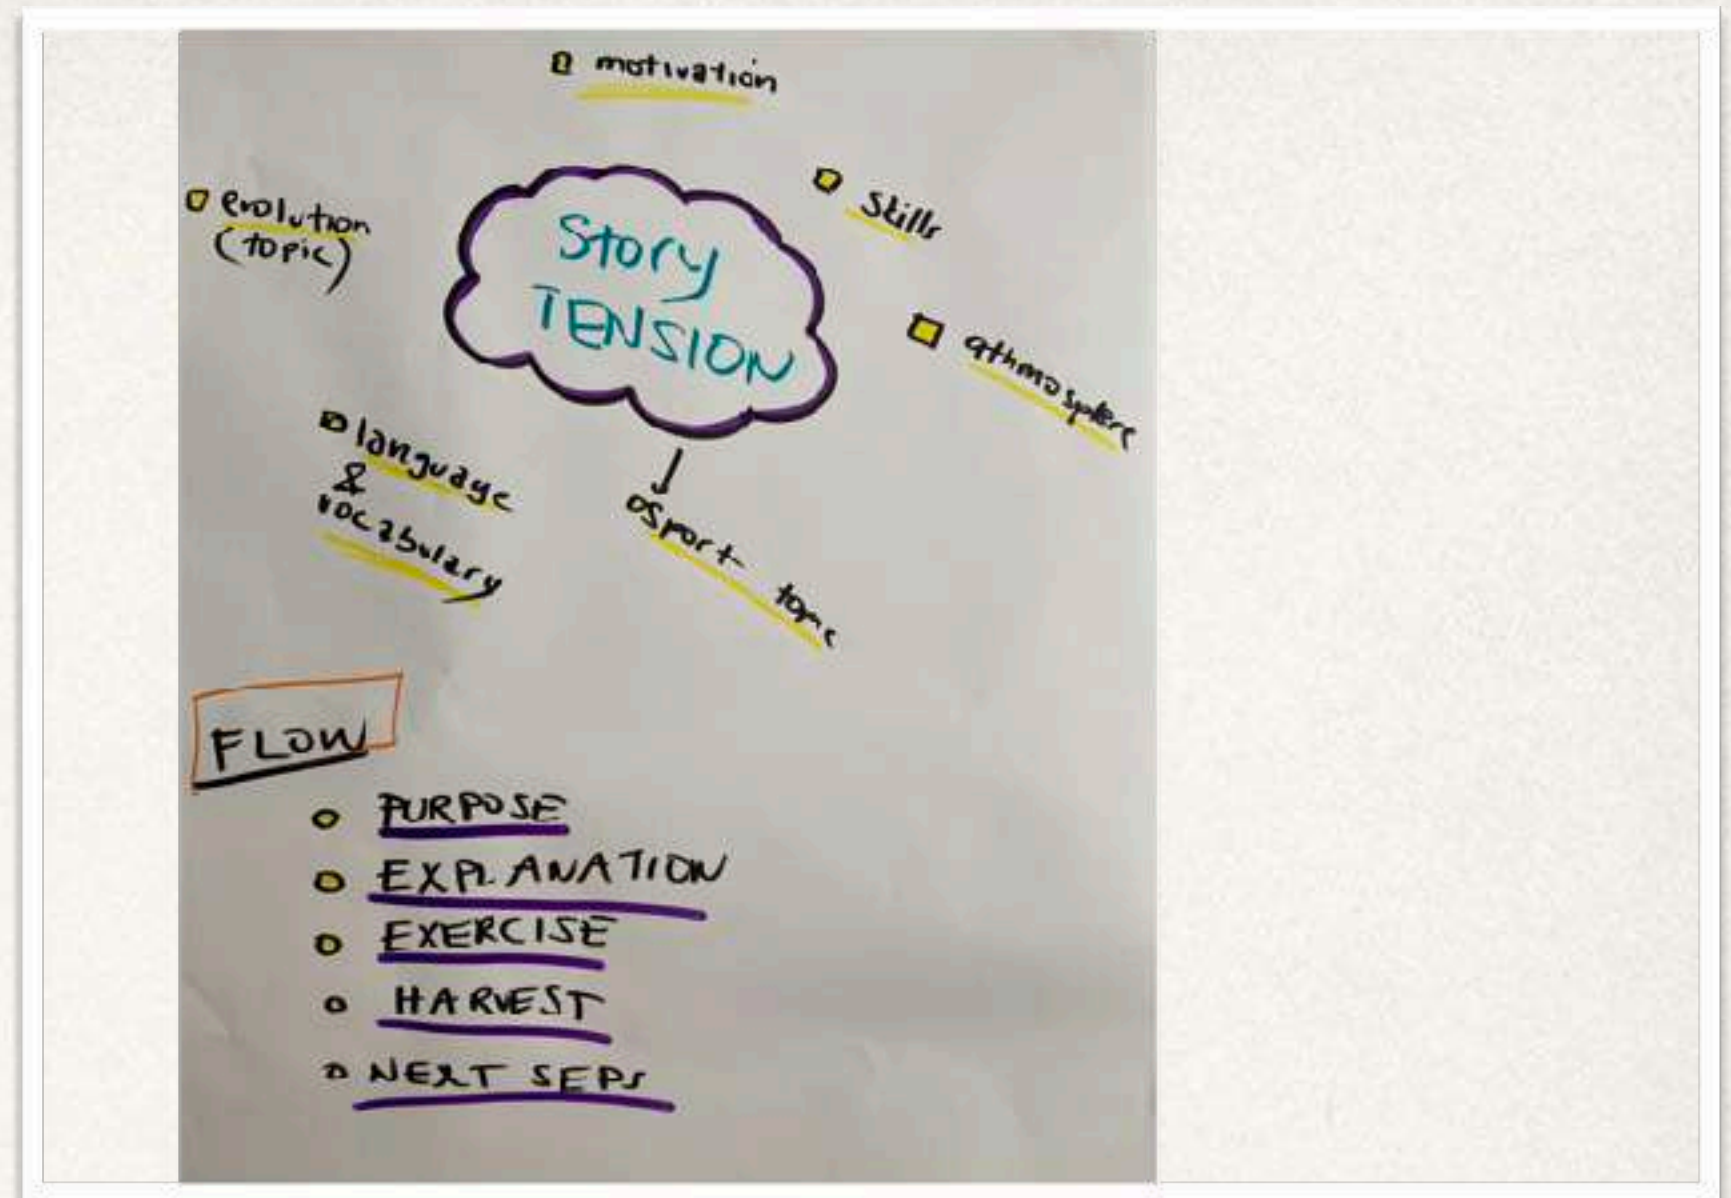 motivation
skills
evolution
(topic)
Story
TENSION
athmosphere
language
&
vocabulary
sport topic
FLOW
PURPOSE
EXPLANATION
EXERCISE
HARVEST
NEXT SEPS